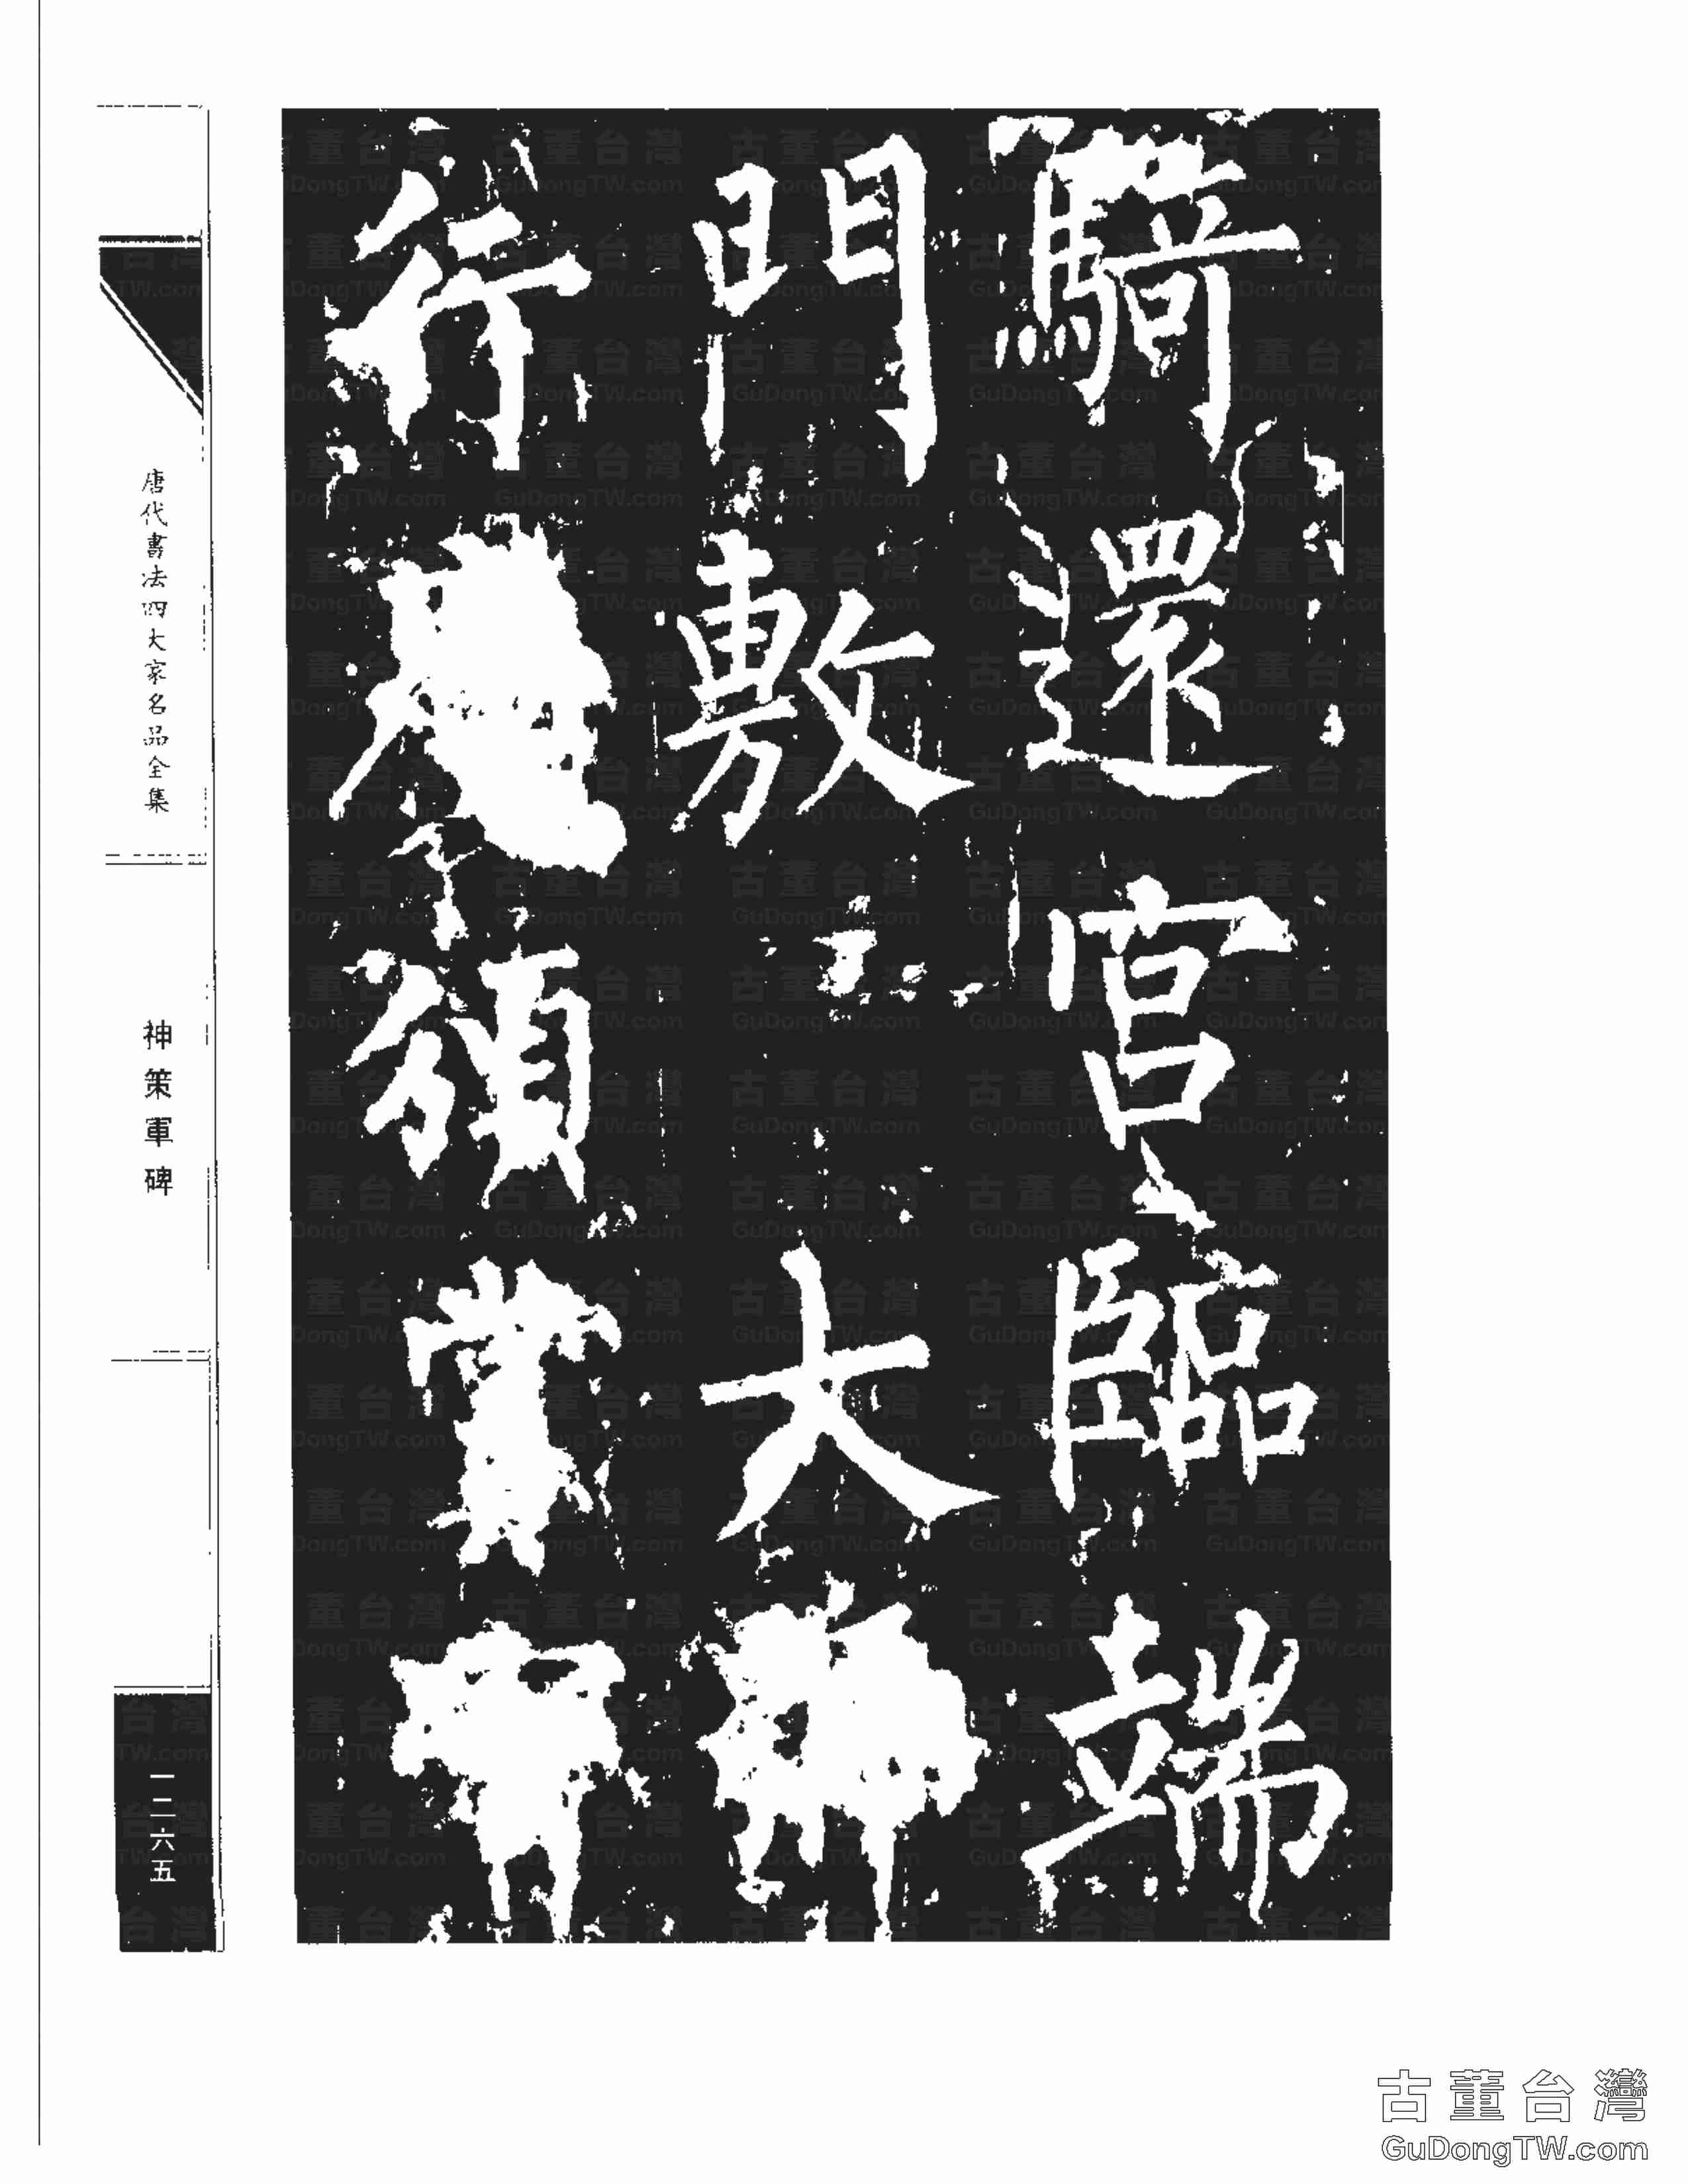 騎還宮臨端
門敷大
行頒賞
唐代書法四大家名品全集
神策軍碑
一二六五
古董台灣
GuDongTW.com